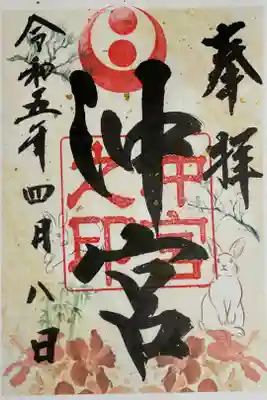 奉拝
沖宮
沖宮之印
令和五年四月八日